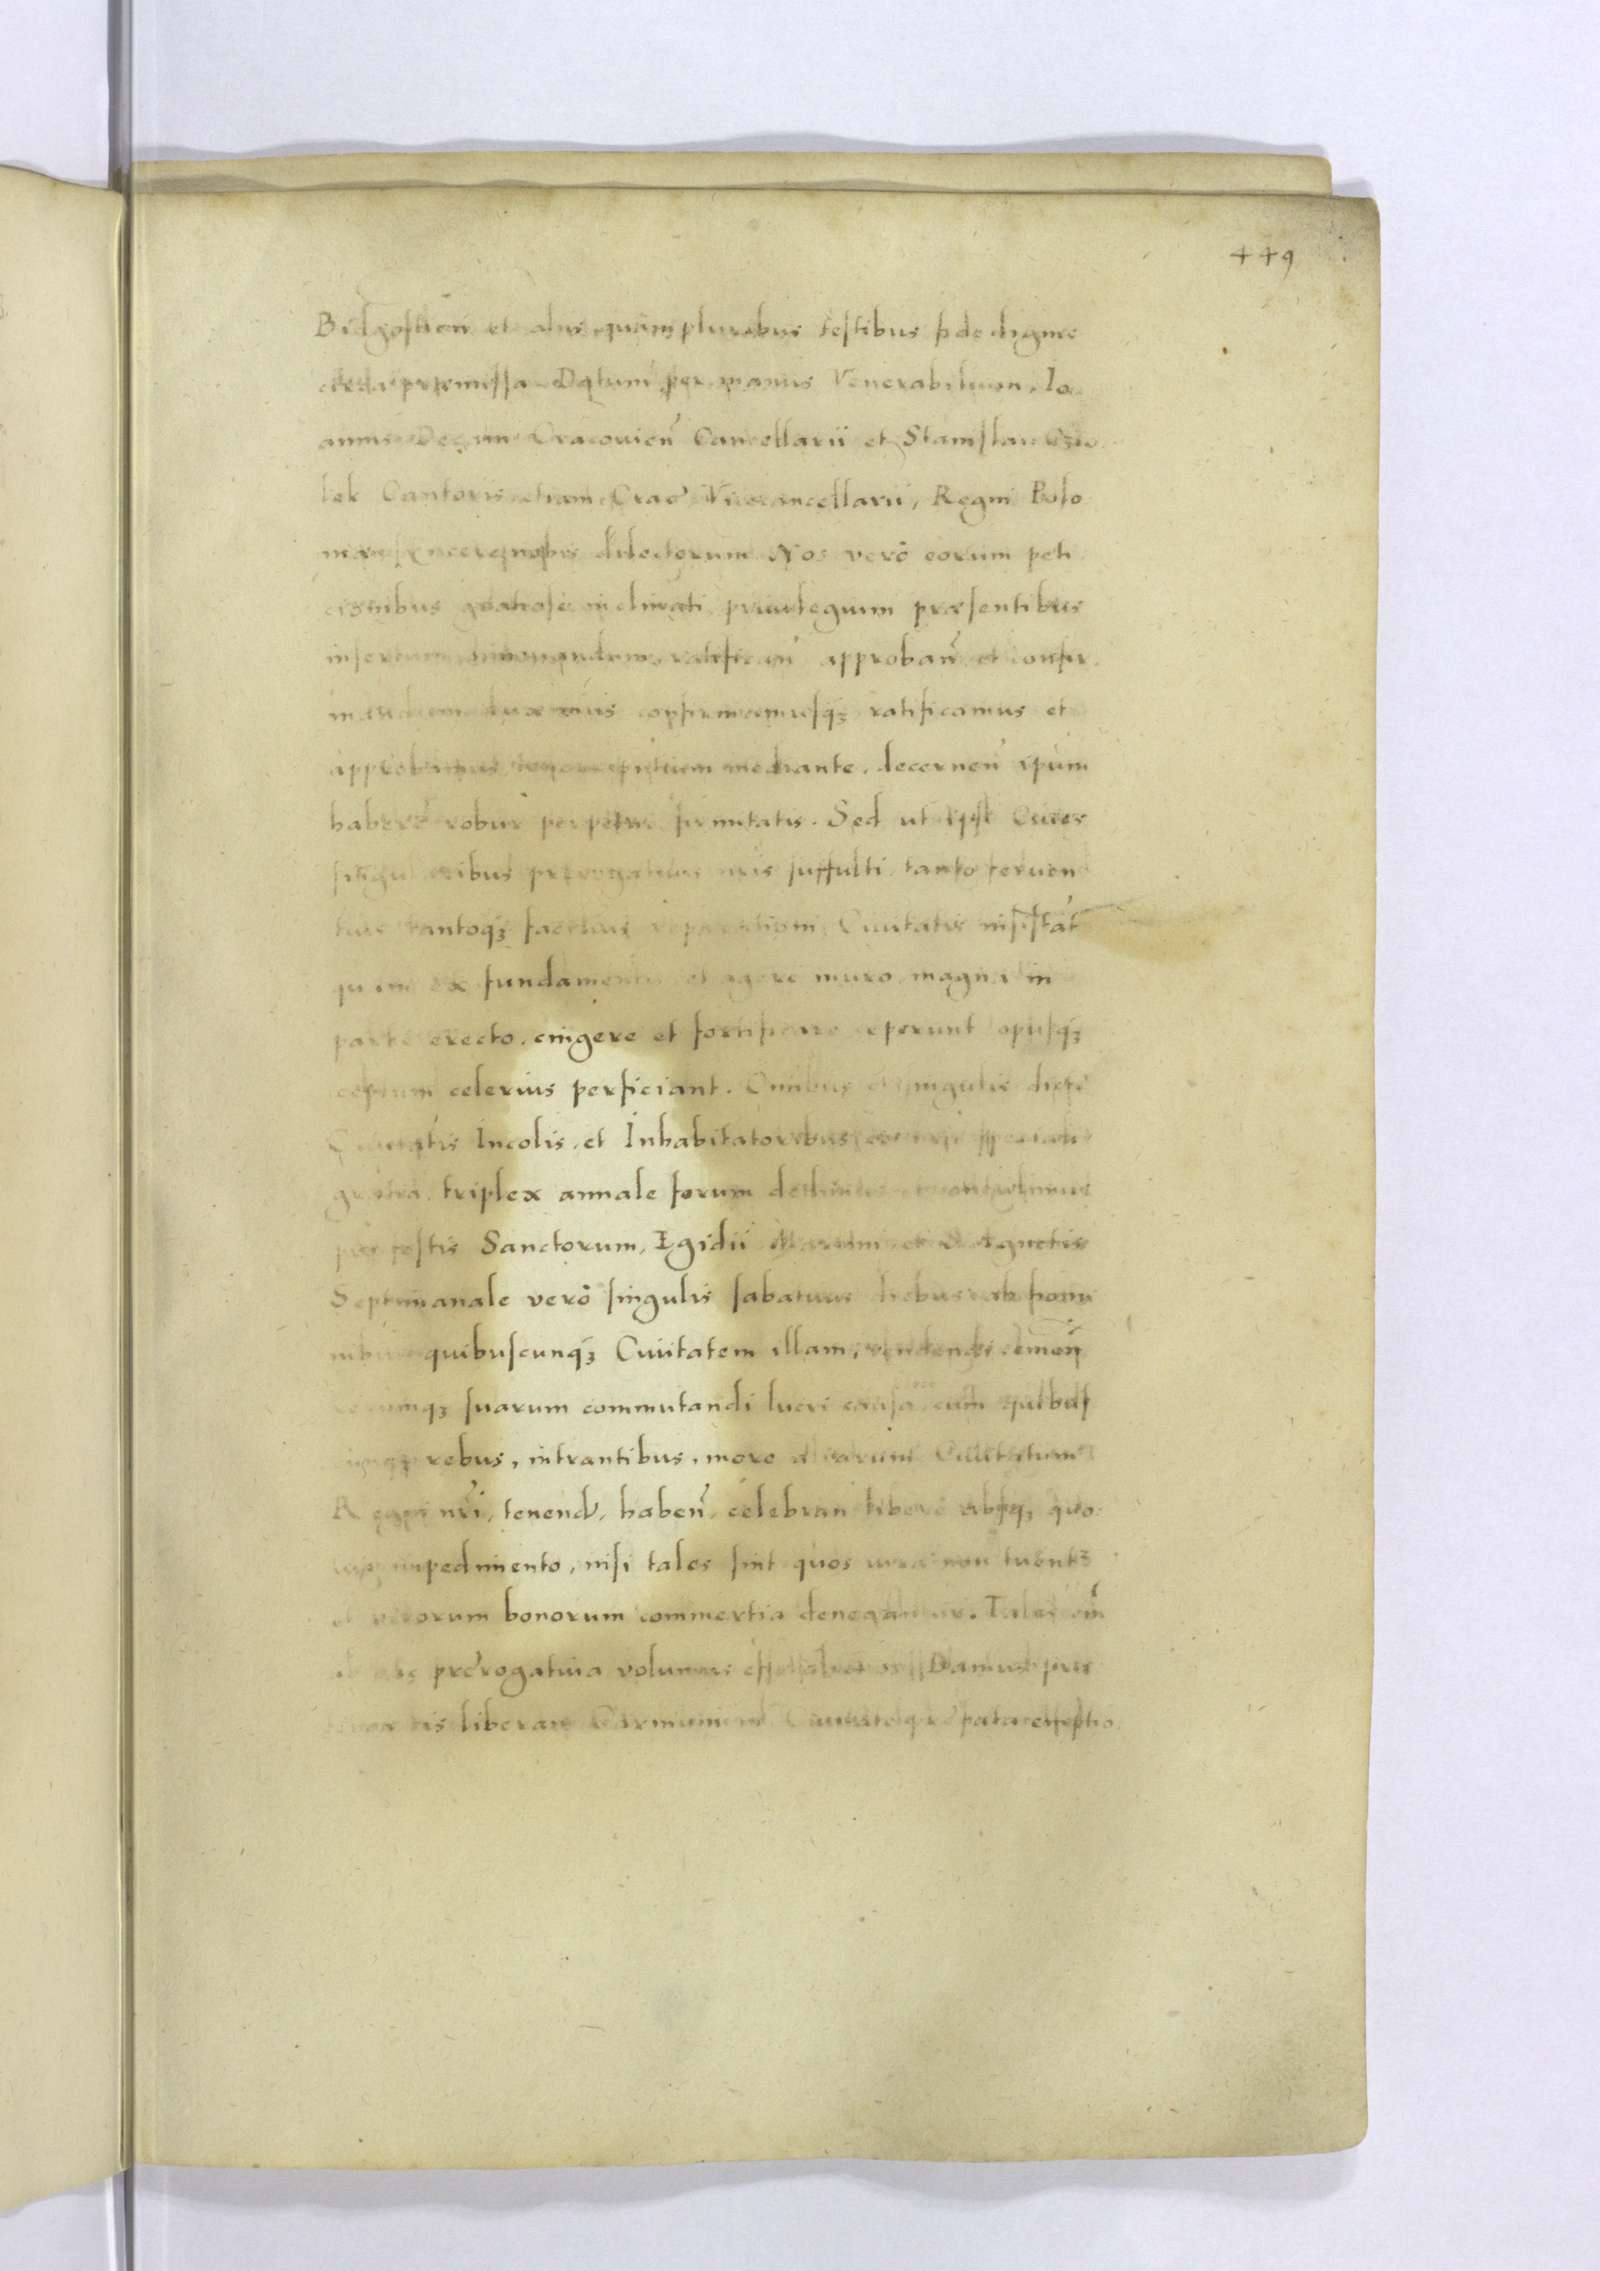 449
Bidgostien̄ et aliis quàm pluribus testibus fide dignis
præmissa. Datum per manus Venerabilium, Io
annis Decani Cracouien̄ Cancellarii et Stanislai Czio
lek Cantoris etiam Crac̄ Vicecancellarii, Regni Polo
niæ sincere nobis dilectorum. Nos verò eorum peti
cionibus gratiose inclinati, priuilegium præsentibus
insertum, ratifican̄ approban̄ et confir
mandum duximus confirmamusq́ꝫ ratificamus et
approbamus, tenore pn̄tium mediante, decernen̄ ip̄um
habere robur perpetue firmitatis. Sed ut ipsi Ciues
singularibus prerogatiuis nr̄is suffulti, tanto feruen
tius tantoq́ꝫ facilius reparationi Ciuitatis insistāt
quam ex fundamento et muro magna in
parte erecto, cingere et fortificare ceperunt opusq́ꝫ
ceptum celerius perficiant. Omnibus et singulis dictæ
Ciuitatis Incolis, et Inhabitatoribus speciali
gratia, triplex annale forum
pro festis Sanctorum, Egidii Martini et Agnetis
Septimanale verò singulis sabatiuis diebus ab homi
nibus quibuscunq́ꝫ Ciuitatem illam, vendendi, emen̄
rerumq́ꝫ suarum commutandi lucri causa cum quibus
cunq́ꝫ rebus, intrantibus, more aliarum Ciuitatum
Regni nr̄i, tenend, haben̄, celebran libere absq́ꝫ quo
uis impedimento, nisi tales sint quos iura non tuentꝫ
et virorum bonorum commertia denegantur. Tales em̄
ab hac prerogatiua volumus Damus præ
terea eis liberam